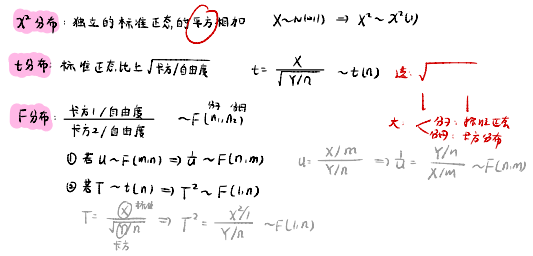 X²分布：独立的标准正态的平方相加 X~N(0,1) ⇒ X²~X²(1)
t分布：标准正态比上√卡方/自由度 t = X / √Y/n ~ t(n) 造：√
大：分子：标准正态
分母：卡方分布
F分布：卡方1/自由度 / 卡方2/自由度 ~F(n₁,n₂) 分子 分母
① 若 U~F(m,n) ⇒ 1/U ~F(n,m) U = X/m / Y/n ⇒ 1/U = Y/n / X/m ~F(n,m)
② 若T~t(n) ⇒ T²~F(1,n)
T = X / √Y/n ⇒ T² = X²/1 / Y/n ~F(1,n)
标准
卡方